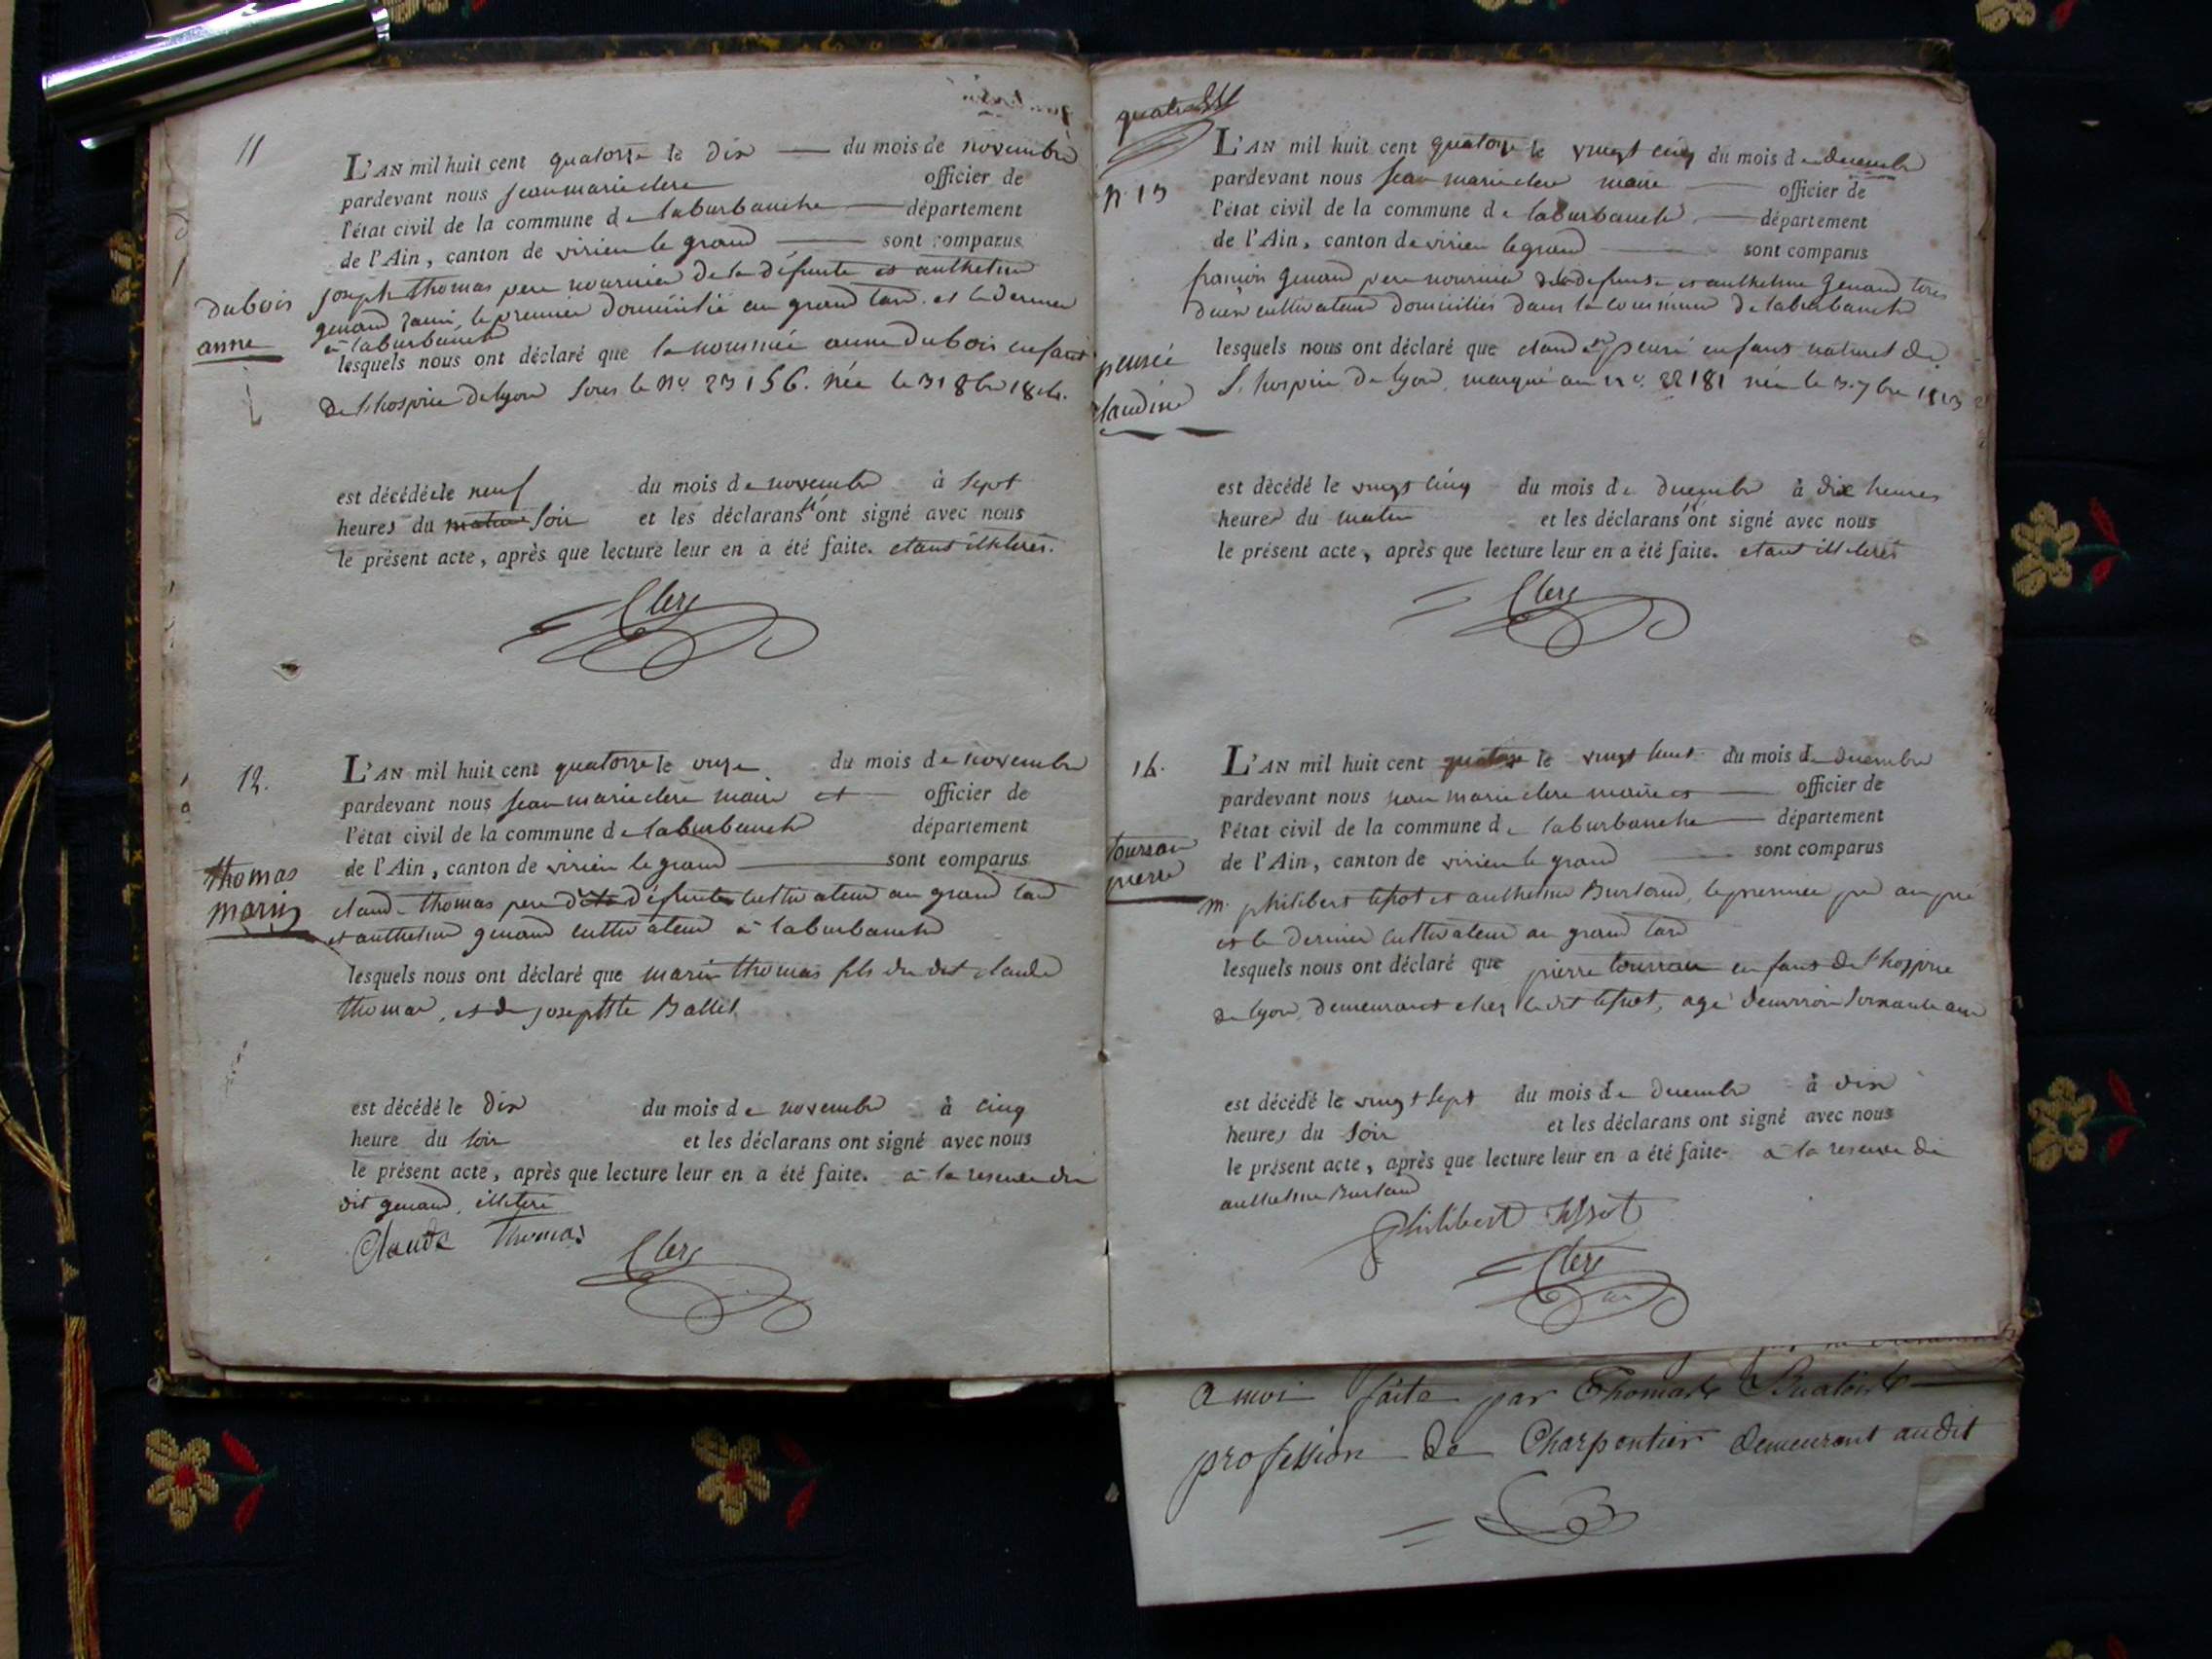 11
L'AN mil huit cent quatorze le dix du mois de novembre
pardevant nous jean marie clerc officier de
l'état civil de la commune de laburbanche département
de l'Ain, canton de virieu le grand sont comparus
joseph thomas pere nourricier de la défunte et anthelme
genand, le premier domicilié au grand tard et le dernier
à laburbanche
dubois
anne
lesquels nous ont déclaré que la nommée anne dubois enfant
de l'hospice de lyon sous le n° 23156. née le 31 8bre
est décédée le neuf du mois de novembre à sept
heures du matin soir et les déclarans n'ont signé avec nous
le présent acte, après que lecture leur en a été faite. etant illiterés.
Clerc
12.
L'AN mil huit cent quatorze le onze du mois de novembre
pardevant nous jean marie clerc maire et officier de
l'état civil de la commune de laburbanche département
de l'Ain, canton de virieu le grand sont comparus
thomas
marin
claude thomas pere défunt cultivateur au grand tard
et anthelme genand cultivateur à laburbanche
lesquels nous ont déclaré que marin thomas fils du dit claude
thomas, et de josephte Ballet
est décédé le dix du mois de novembre à cinq
heure du soir et les déclarans ont signé avec nous
le présent acte, après que lecture leur en a été faite. à la reserve du
dit genand, illiteré
Claude Thomas
Clerc
L'AN mil huit cent quatorze le vingt cinq du mois de decembre
pardevant nous jean marie clerc maire officier de
n° 13
l'état civil de la commune de laburbanche département
de l'Ain, canton de virieu le grand sont comparus
françois genand pere nourricier de la defunte et anthelme genand tous
deux cultivateurs domiciliés dans la commune de laburbanche
pensée
claudine
lesquels nous ont déclaré que claudine pensée enfant naturel de
l'hospice de lyon, marqué au n° 22181 née le 3 7bre 1813
est décédé le vingt cinq du mois de decembre à dix heures
heures du matin et les déclarans n'ont signé avec nous
le présent acte, après que lecture leur en a été faite. etant illiterés
Clerc
14.
L'AN mil huit cent quatorze le vingt huit du mois de decembre
pardevant nous jean marie clerc maire et officier de
l'état civil de la commune de laburbanche département
de l'Ain, canton de virieu le grand sont comparus
pierre
m. philibert et anthelme Burtand, le premier
et le dernier cultivateur au grand tard
lesquels nous ont déclaré que pierre enfant de l'hospice
de lyon, demeurant chez le dit agé d'environ soixante ans
est décédé le vingt sept du mois de decembre à dix
heures du soir et les déclarans ont signé avec nous
le présent acte, après que lecture leur en a été faite. à la reserve de
anthelme Burtand
Philibert
Clerc
a moi faite par Thomas
profession de Charpentier demeurant audit